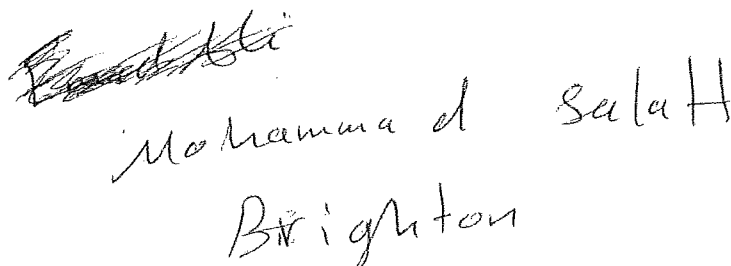 Mohammad SalaH
Brighton